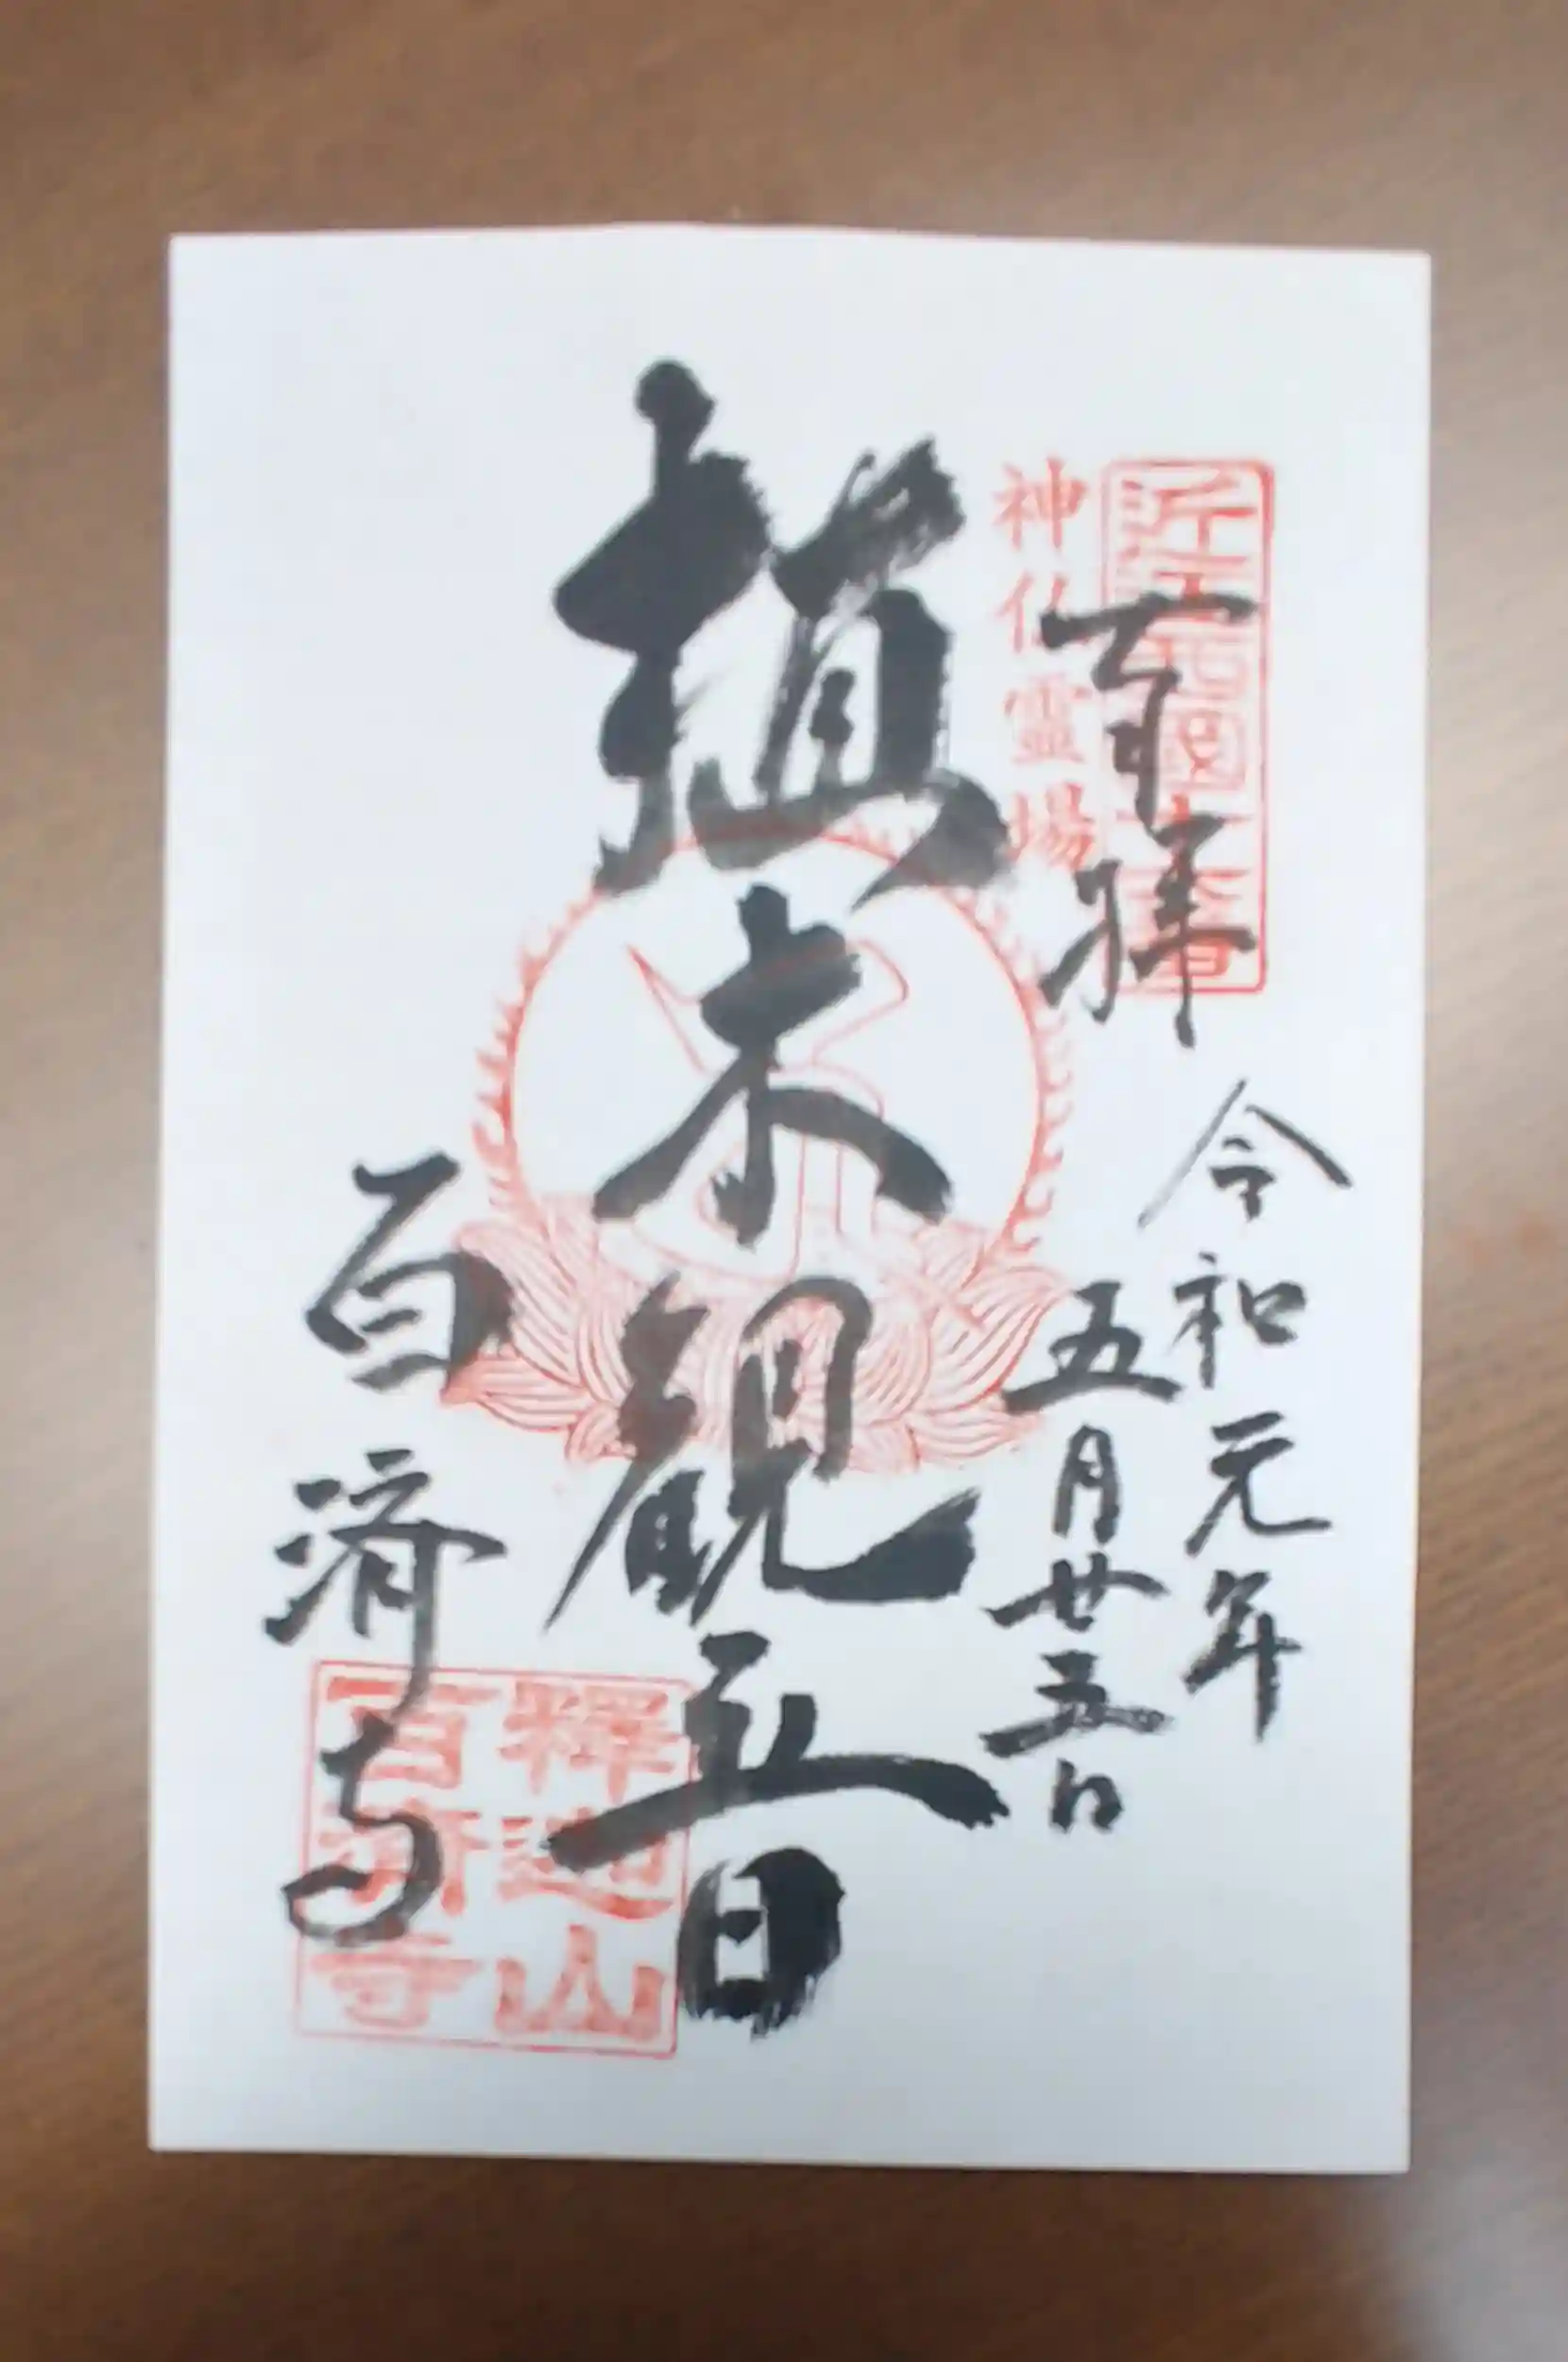 近江西国十六番
神仏霊場
奉拝
令和元年
五月廿五日
植木観音
百済寺
釋迦山
百済寺